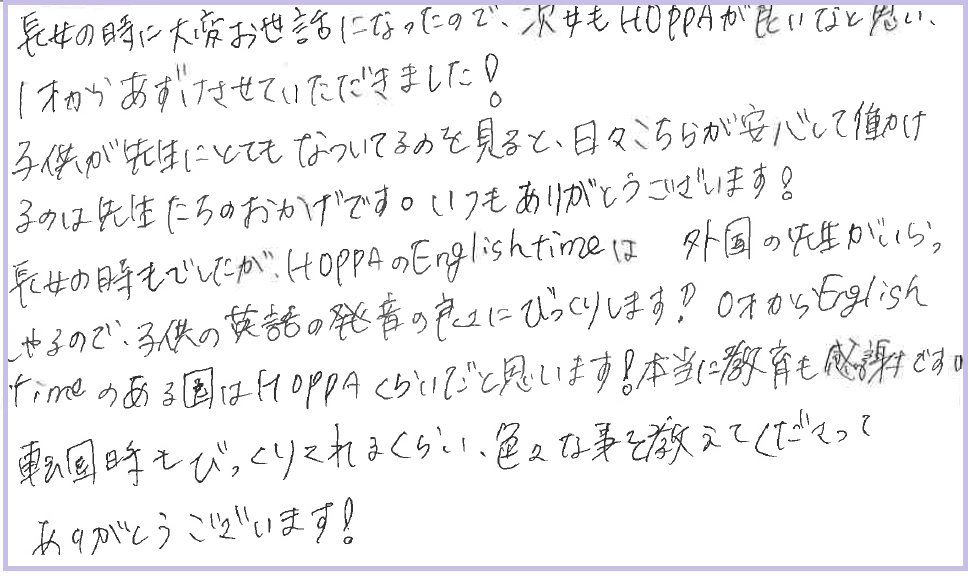 長女の時に大変お世話になったので、次女もHOPPAが良いなと思い、
1才からあずけさせていただきました!
子供が先生にとてもなついてるのを見ると、日々こちらが安心して働け
るのは先生たちのおかげです。いつもありがとうございます!
長女の時もでしたが、HOPPAのEnglishtimeは 外国の先生がいらっ
しゃるので、子供の英語の発音の良さにびっくりします! 0才からEnglish
timeのある園はHOPPAくらいだと思います!本当に教育も感謝です。
転園時もびっくりされるくらい、色々な事を教えてくださって
ありがとうございます!